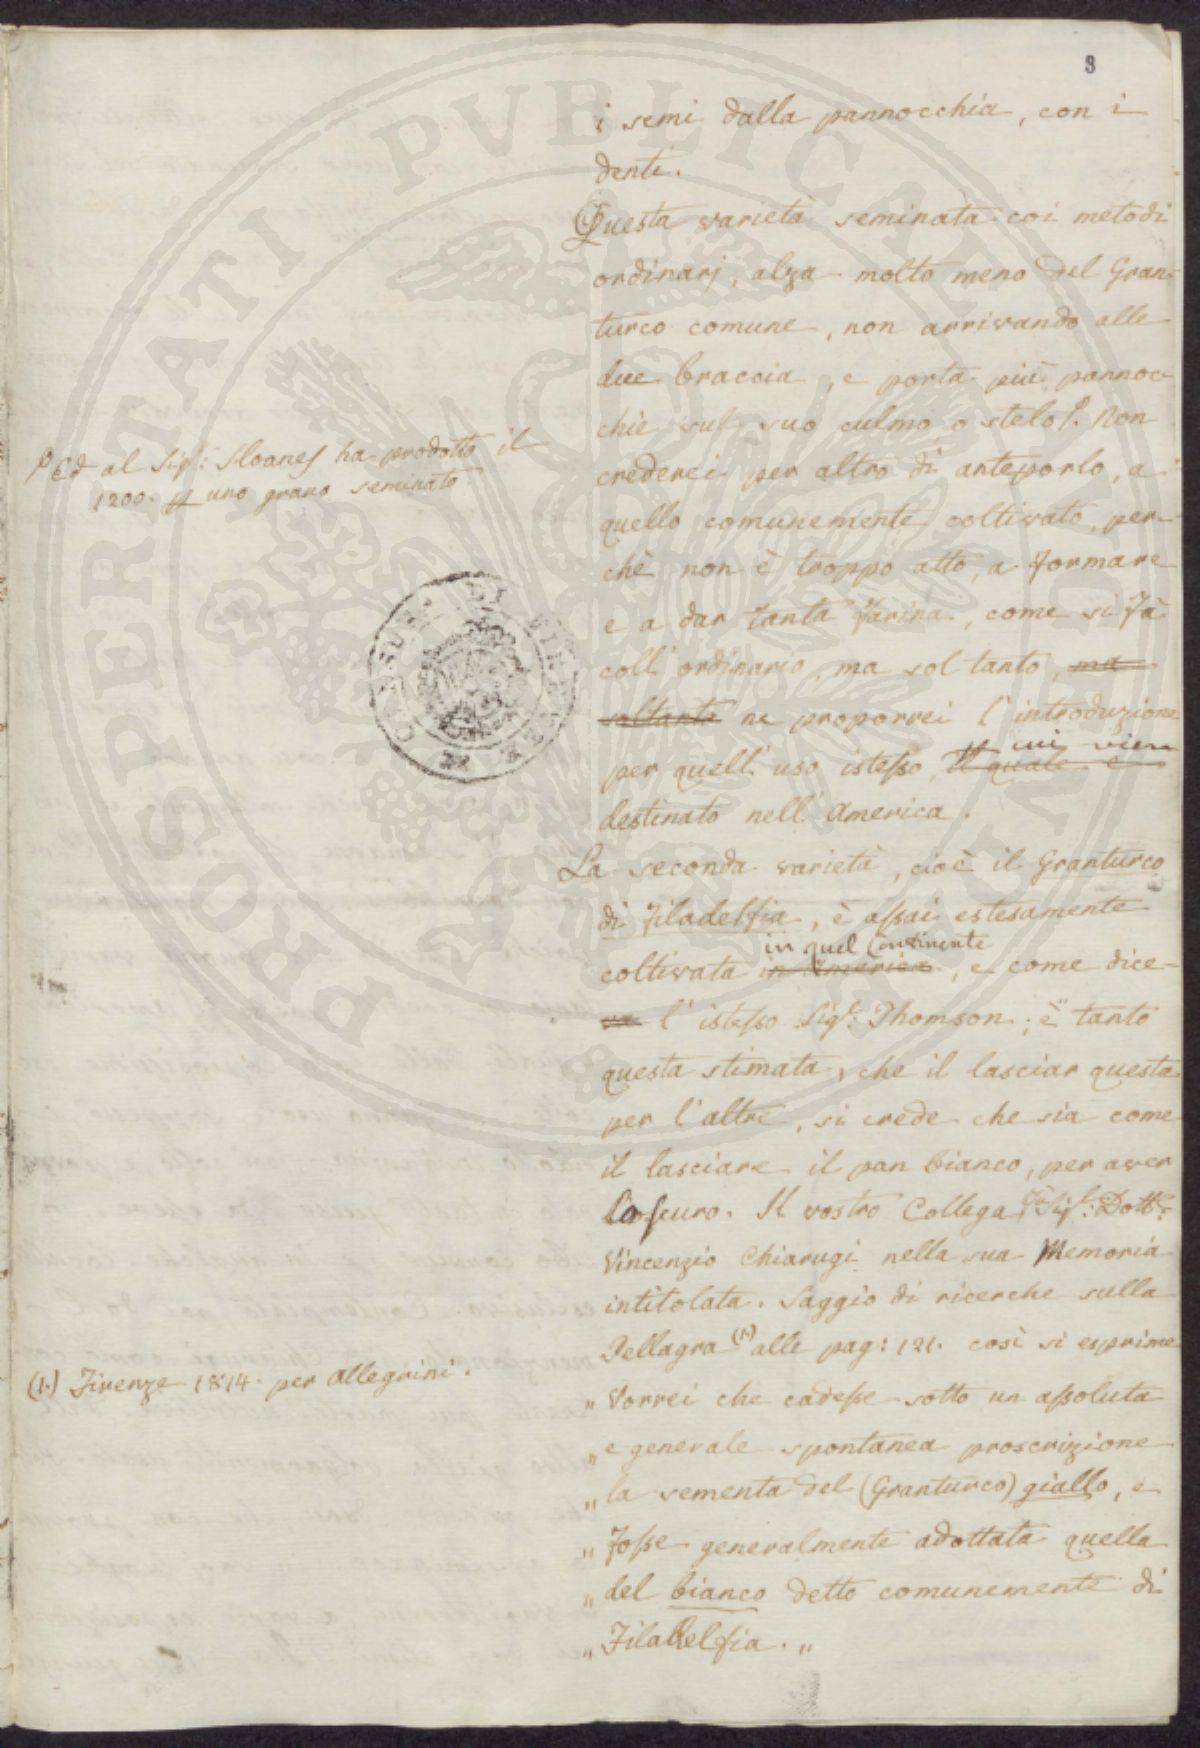 3
i semi dalla pannocchia, con i
denti.
Questa varietà seminata coi metodi
ordinarj, alza molto meno del Gran-
turco comune, non arrivando alle
due braccia, e porta più pannoc-
chie sul suo culmo o stelo. Non
crederei per altro di anteporlo, a
quello comunemente coltivato, per-
chè non è troppo atto, a formare
e a dar tanta farina, come si fà
coll' ordinario, ma sol tanto, ma
soltanto ne proporrei l'introduzione
per quell' uso istesso, il quale è
cui vien
destinato nell' America.
La seconda varietà, cioè il Granturco
di Filadelfia, è assai estesamente
in quel Continente
coltivata in America, e come dice-
va l' istesso Sig.r: Thomson, è tanto
questa stimata, che il lasciar questa
per l'altre, si crede che sia come
il lasciare il pan bianco, per aver
l'oscuro. Il vostro Collega Sig.r: Dott.e:
Vincenzio Chiarugi nella sua Memoria
intitolata. Saggio di ricerche sulla
Pellagra (1.) alle pag: 121. così si esprime
„ Vorrei che cadesse sotto un assoluta
„ e generale spontanea proscrizione
„ la sementa del (Granturco) giallo, e
„ fosse generalmente adottata quella
„ del bianco detto comunemente di
„ Filadelfia. „
Ed al Sig.r: Sloanes ha prodotto il
1200. uno grano seminato
(1.) Firenze 1814. per Allegrini.
PROSPERITATI PVBLICAE AVGENDAE